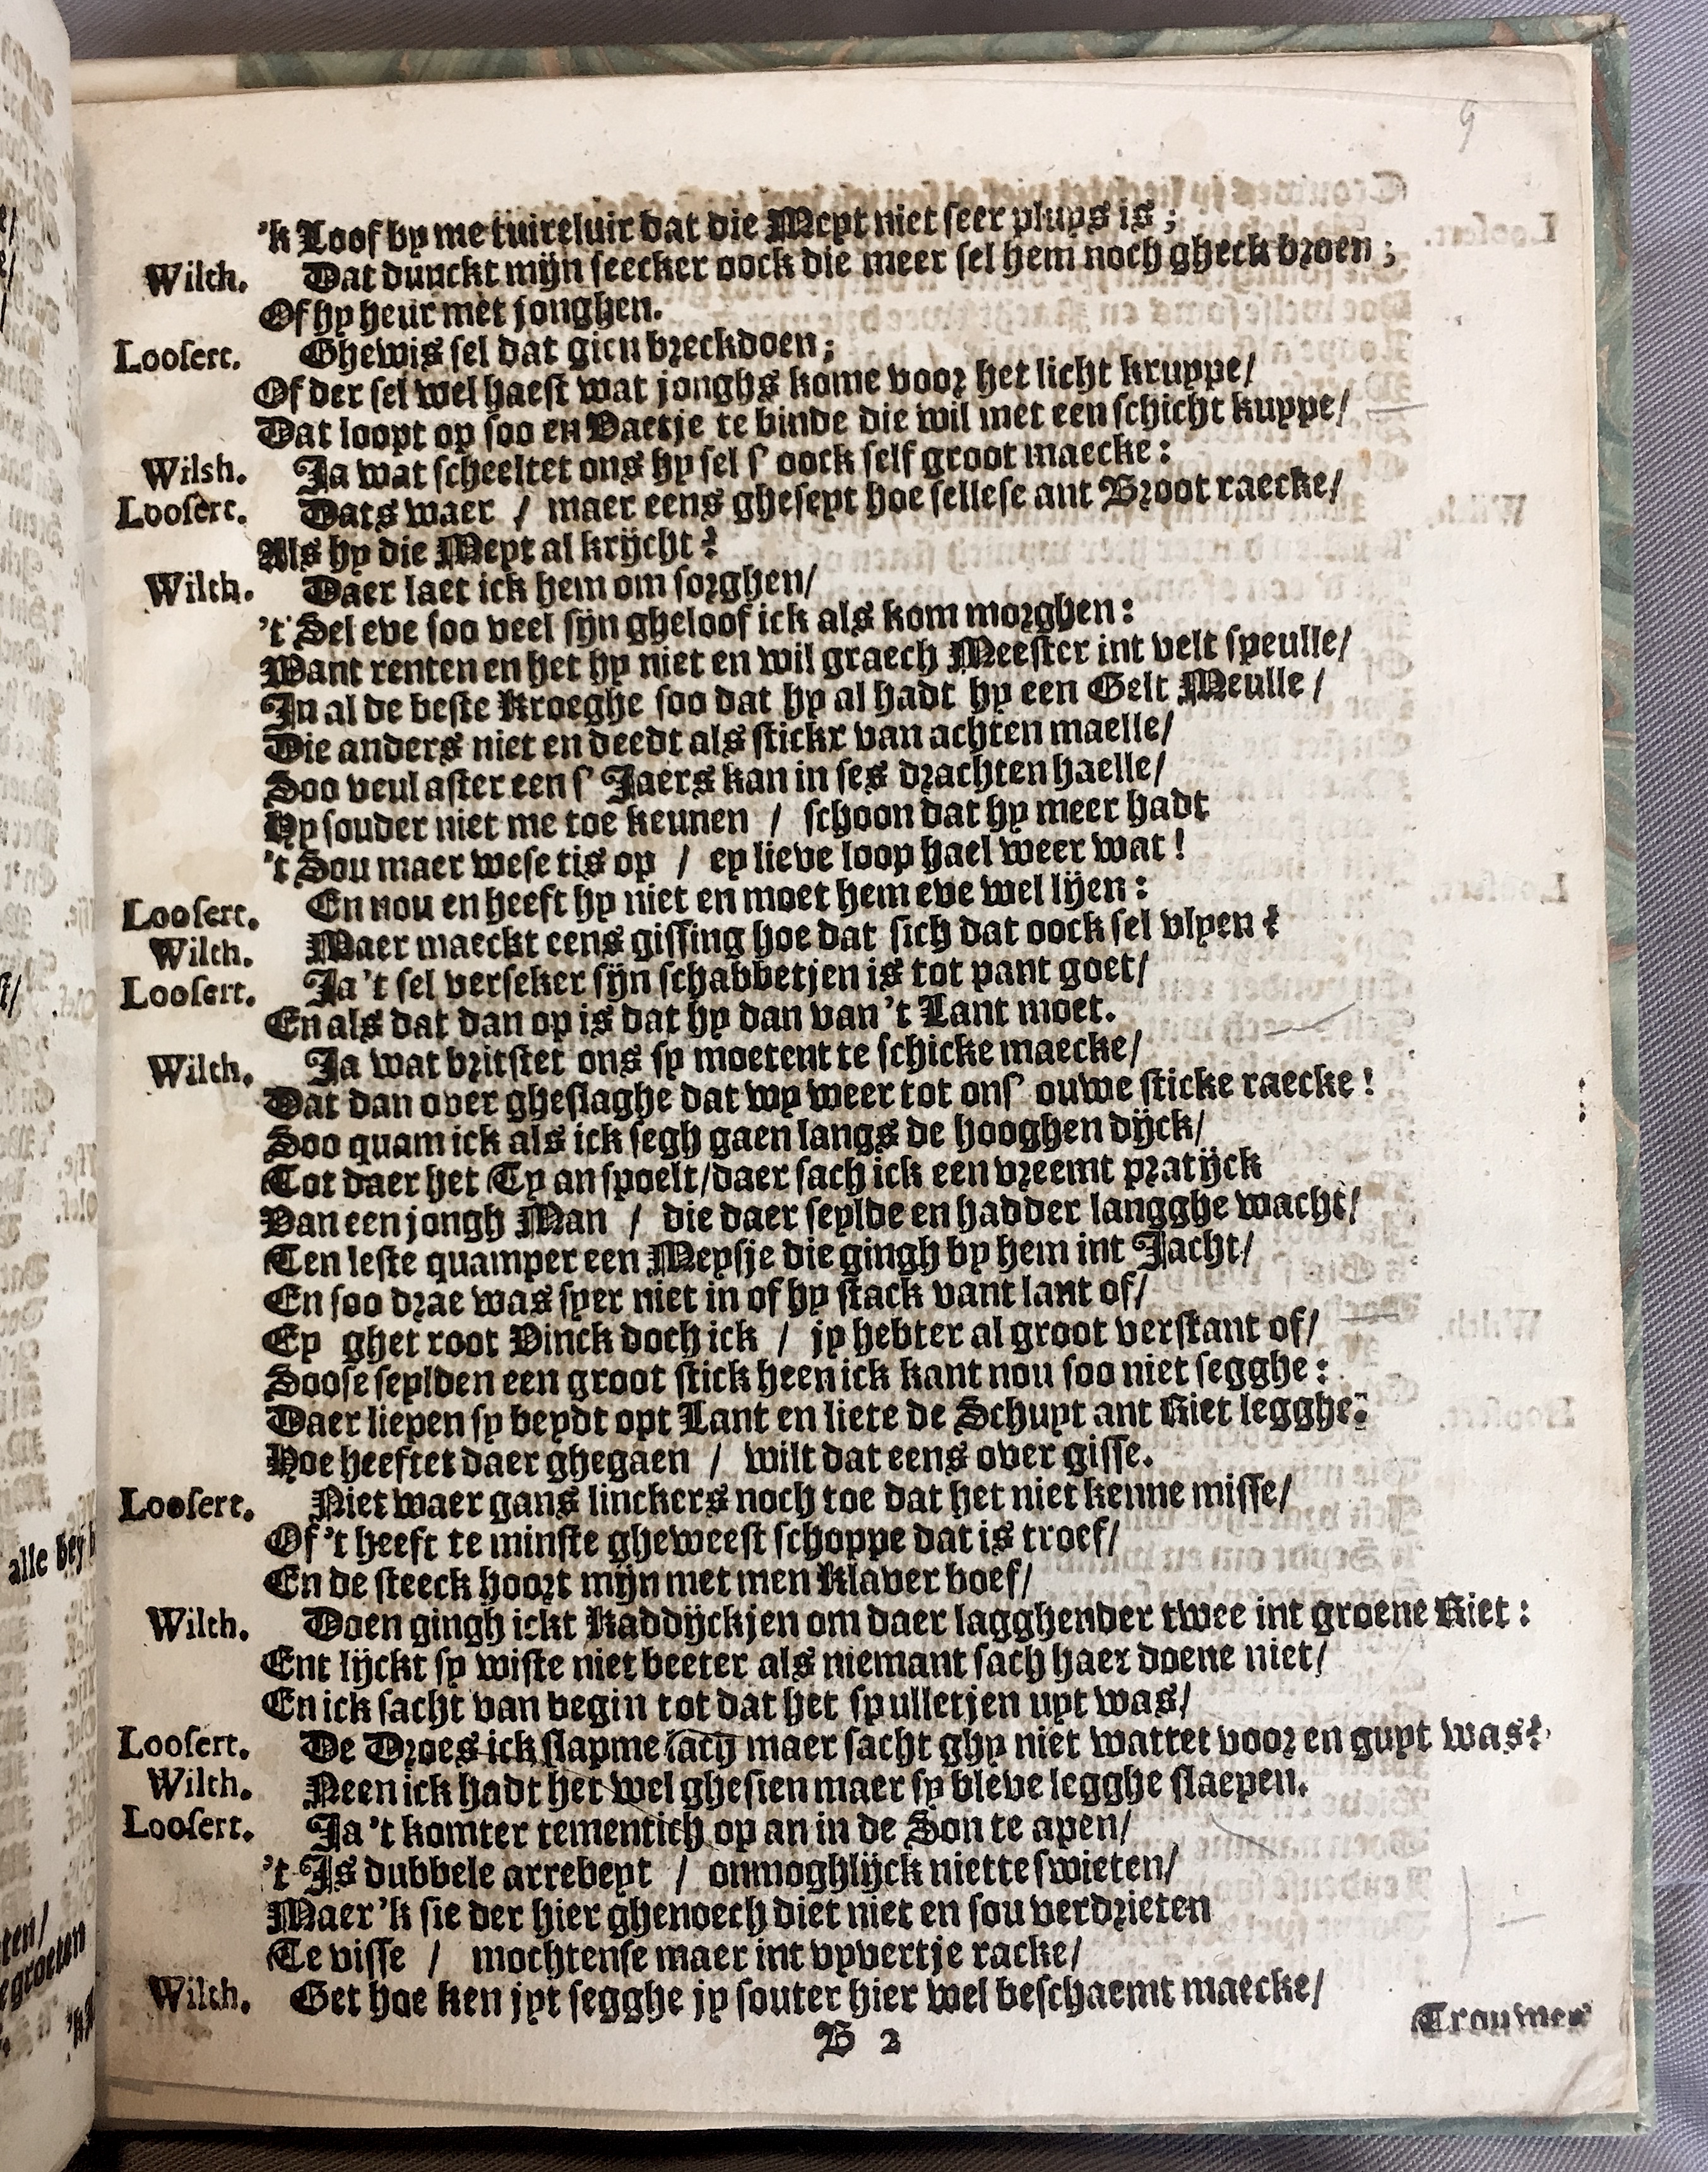 9
'k Loof by me tuireluir dat die Meyt niet seer pluys is ;
Wilch. Dat dunckt mijn seecker oock die meer sel hem noch gheck broen ;
Of hy heur met jonghen.
Loosert. Ghewis sel dat gien breckdoen;
Of der sel wel haest wat jonghs kome voor het licht kruppe/
Dat loopt op soo en Vaetje te binde die wil met een schicht kuppe/
Wilsh. Ja wat scheeltet ons hy sel s' oock self groot maecke:
Loosert. Dats waer / maer eens gheseyt hoe sellese ant Broot raecke/
Als hy die Meyt al krijcht?
Wilch. Daer laet ick hem om sorghen/
't Sel eve soo veel sijn gheloof ick als kom morghen:
Want renten en het hy niet en wil graech Meester int velt speulle/
In al de beste Kroeghe soo dat hy al hadt hy een Gelt Meulle /
Die anders niet en deedt als stickr van achten maelle/
Soo veul after een s' Jaers kan in ses drachten haelle/
Hy souder niet me toe keunen / schoon dat hy meer hadt
't Sou maer wese tis op / ey lieve loop hael weer wat !
Loosert. En nou en heeft hy niet en moet hem eve wel lijen:
Wilch. Maer maeckt eens gissing hoe dat sich dat oock sel vlyen?
Loosert. Ja 't sel verseker sijn schabbetjen is tot pant goet/
En als dat dan op is dat hy dan van 't Lant moet.
Wilch. Ja wat britstet ons sy moetent te schicke maecke/
Dat dan over gheslaghe dat wy weer tot ons' ouwe sticke raecke !
Soo quam ick als ick segh gaen langs de hooghen dijck/
Tot daer het Ty an spoelt/daer sach ick een vreemt pratijck
Van een jongh Man / die daer seylde en hadder langghe wacht/
Ten leste quamper een Meysje die gingh by hem int Jacht/
En soo drae was syer niet in of hy stack vant lant of/
Ey ghet root Vinck doch ick / jy hebter al groot verstant of/
Soose seylden een groot stick heen ick kant nou soo niet segghe:
Daer liepen sy beydt opt Lant en liete de Schuyt ant Riet legghe:
Hoe heeftet daer ghegaen / wilt dat eens over gisse.
Loosert. Niet waer gans linckers noch toe dat het niet kenne misse/
Of 't heeft te minste gheweest schoppe dat is troef/
En de steeck hoort mijn met men Klaver boef/
Wilch. Doen gingh ickt Kaddijckjen om daer lagghender twee int groene Riet:
Ent lijckt sy wiste niet beeter als niemant sach haer doene niet/
En ick sacht van begin tot dat het spulletjen uyt was/
Loosert. De Droes ick slapme sacy maer sacht ghy niet wattet voor en guyt was?
Wilch. Neen ick hadt het wel ghesien maer sy bleve legghe slaepen.
Loosert. Ja 't komter tementich op an in de Son te apen/
't Is dubbele arrebeyt / onmoghlijck niet te swieten/
Maer 'k sie der hier ghenoech diet niet en sou verdrieten
Te visse / mochtense maer int vyvertje racke/
Wilch. Get hoe ken jyt segghe jy souter hier wel beschaemt maecke/
B 2
Trouwen